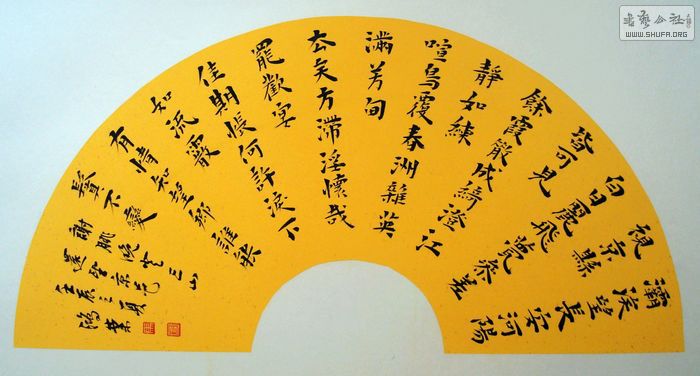 書藝公社
WWW.SHUFA.ORG
灞涘望長安河陽
視京縣
白日麗飛甍參差
皆可見
餘霞散成綺澄江
靜如練
喧鳥覆春洲雜英
滿芳甸
去矣方滯淫懷哉
罷歡宴
佳期悵何許淚下
如流霰
有情知望鄉誰能
鬒不變
謝朓晚登三山
還望京邑
壬辰